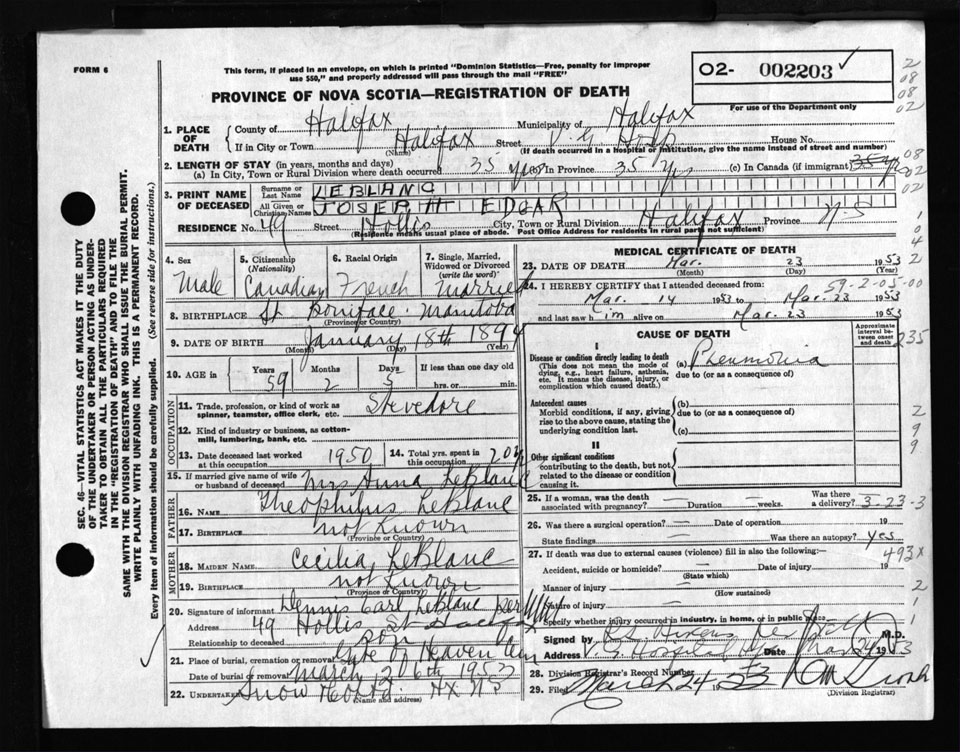 FORM 6
This form, if placed in an envelope, on which is printed "Dominion Statistics—Free, penalty for improper
use $50," and properly addressed will pass through the mail "FREE"
O2- 002203 ✓
PROVINCE OF NOVA SCOTIA—REGISTRATION OF DEATH
For use of the Department only
2
08
08
02
1. PLACE OF DEATH
County of Halifax Municipality of Halifax
If in City or Town Halifax Street V.G. Hosp House No.
(Name) (If death occurred in a hospital or institution, give the name instead of street and number)
2. LENGTH OF STAY (in years, months and days)
(a) In City, Town or Rural Division where death occurred 35 yrs (b) In Province 35 Yrs (c) In Canada (if immigrant) 35 yrs
08
02
02
3. PRINT NAME OF DECEASED
Surname or Last Name LEBLANC
All Given or Christian Names JOSEPH EDGAR
RESIDENCE No. 49 Street Hollis City, Town or Rural Division Halifax Province N-S
(Residence means usual place of abode. Post Office Address for residents in rural parts not sufficient)
1
0
4
2
4. Sex Male
5. Citizenship (Nationality) Canadian
6. Racial Origin French
7. Single, Married, Widowed or Divorced (write the word) Married
8. BIRTHPLACE St Boniface Manitoba
(Province or Country)
9. DATE OF BIRTH January 18th 1894
(Month) (Day) (Year)
10. AGE in Years 59 Months 2 Days 5 If less than one day old
hrs. or min.
OCCUPATION
11. Trade, profession, or kind of work as spinner, teamster, office clerk, etc. Stevedore
12. Kind of industry or business, as cotton-mill, lumbering, bank, etc.
13. Date deceased last worked at this occupation 1950
14. Total yrs. spent in this occupation 20 y
15. If married give name of wife or husband of deceased Mrs Anna LeBlanc
FATHER
16. Name Theophilus LeBlanc
17. Birthplace not Known
(Province or Country)
MOTHER
18. Maiden Name Cecilia LeBlanc
19. Birthplace not Known
(Province or Country)
20. Signature of informant Dennis Earl LeBlanc per
Address 49 Hollis St Halifax
Relationship to deceased son
21. Place of burial, cremation or removal Gate of Heaven Cem
Date of burial or removal March 26th 1953
22. Undertaker Snow Hx NS
(Name and address)
MEDICAL CERTIFICATE OF DEATH
23. DATE OF DEATH Mar. 23 1953
(Month) (Day) (Year)
24. I HEREBY CERTIFY that I attended deceased from: 59-2-05-00
Mar. 14 1953 to Mar. 23 1953
and last saw him alive on Mar. 23 1953
CAUSE OF DEATH
Approximate interval between onset and death
235
I
Disease or condition directly leading to death (a) Pneumonia
(This does not mean the mode of dying, e.g., heart failure, asthenia, etc. It means the disease, injury, or complication which caused death.)
due to (or as a consequence of)
Antecedent causes (b)
Morbid conditions, if any, giving rise to the above cause, stating the underlying condition last.
due to (or as a consequence of)
(c)
2
9
9
II
Other significant conditions
contributing to the death, but not related to the disease or condition causing it.
25. If a woman, was the death associated with pregnancy? — Duration — weeks. Was there a delivery? 3-23-3
26. Was there a surgical operation? — Date of operation 19
State findings — Was there an autopsy? yes
27. If death was due to external causes (violence) fill in also the following:— 493X
Accident, suicide or homicide? — Date of injury 19
(State which)
Manner of injury
(How sustained)
Nature of injury —
Specify whether injury occurred in industry, in home, or in public place
2
1
1
Signed by M.D.
Address V G Hospital Date Mar 24 1953
28. Division Registrar's Record Number
29. Filed March 24 1953
(Division Registrar)
SEC. 46—VITAL STATISTICS ACT MAKES IT THE DUTY
OF THE UNDERTAKER OR PERSON ACTING AS UNDER-
TAKER TO OBTAIN ALL THE PARTICULARS REQUIRED
IN THE "REGISTRATION OF DEATH" AND TO FILE THE
SAME WITH THE DIVISION REGISTRAR WHO SHALL ISSUE THE BURIAL PERMIT.
WRITE PLAINLY WITH UNFADING INK. THIS IS A PERMANENT RECORD.
Every item of information should be carefully supplied. (See reverse side for instructions.)